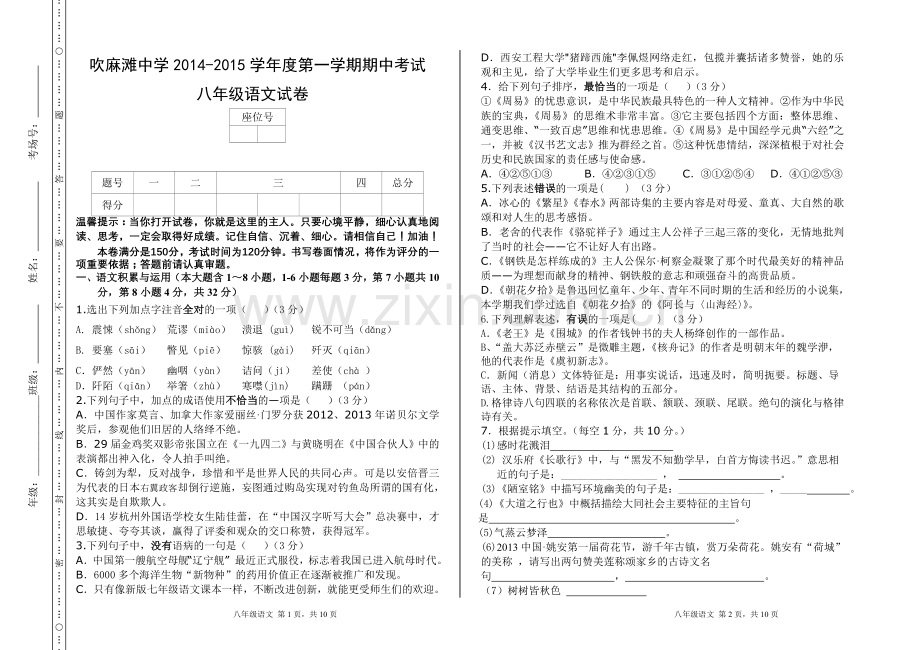 考场号：
姓名：
班级：
年级：
题 答 要 不 内 线 封 密
吹麻滩中学2014-2015学年度第一学期期中考试
八年级语文试卷
座位号
题号 一 二 三 四 总分
得分
温馨提示：当你打开试卷，你就是这里的主人。只要心境平静，细心认真地阅
读、思考，一定会取得好成绩。记住自信、沉着、细心。请相信自己！加油！
本卷满分是150分，考试时间为120分钟。书写卷面情况，将作为评分的一
项重要依据；答题前请认真审题。
一、语文积累与运用（本大题含1～8小题，1-6小题每题3分，第7小题共10
分，第8小题4分，共32分）
1.选出下列加点字注音全对的一项（ ）（3分）
A. 震悚（shǒng） 荒谬（miào） 溃退（guì） 锐不可当（dāng）
B. 要塞（sāi） 瞥见（piē） 惊骇（gài） 歼灭（qiān）
C. 俨然（yǎn） 幽咽（yàn） 诘问（jì） 差使（chà ）
D. 阡陌（qiān） 举箸（zhù） 寒噤(jìn) 蹒跚 （pán）
2.下列句子中，加点的成语使用不恰当的—项是（ ）（3分）
A．中国作家莫言、加拿大作家爱丽丝·门罗分获2012、2013年诺贝尔文学
奖后，参观他们旧居的人络绎不绝。
B．29届金鸡奖双影帝张国立在《一九四二》与黄晓明在《中国合伙人》中的
表演都出神入化，令人拍手叫绝。
C．铸剑为犁，反对战争，珍惜和平是世界人民的共同心声。可是以安倍晋三
为代表的日本右翼政客却倒行逆施，妄图通过购岛实现对钓鱼岛所谓的国有化，
这其实是自欺欺人。
D．14岁杭州外国语学校女生陆佳蕾，在“中国汉字听写大会”总决赛中，才
思敏捷、夸夸其谈，赢得了评委和观众的交口称赞，获得冠军。
3.下列句子中，没有语病的一句是（ ）（3分）
A．中国第一艘航空母舰“辽宁舰” 最近正式服役，标志着我国已进入航母时代。
B．6000多个海洋生物“新物种”的药用价值正在逐渐被推广和发现。
C．只有像新版七年级语文课本一样，不断改进创新，就能更受师生们的欢迎。
八年级语文 第1页，共10页
D．西安工程大学"猪蹄西施"李佩煜网络走红，包揽并囊括诸多赞誉，她的乐
观和主见，给了大学毕业生们更多思考和启示。
4．给下列句子排序，最恰当的一项是（ ）（3分）
①《周易》的忧患意识，是中华民族最具特色的一种人文精神。②作为中华民
族的宝典，《周易》的思维术非常丰富。③它主要包括四个方面：整体思维、
通变思维、“一致百虑”思维和忧患思维。④《周易》是中国经学元典“六经”之
一，并被《汉书艺文志》推为群经之首。⑤这种忧患情结，深深植根于对社会
历史和民族国家的责任感与使命感。
A．④②⑤①③ B．④②③①⑤ C．③①②⑤④ D．④②①⑤③
5.下列表述错误的一项是( ) （3分）
A．冰心的《繁星》《春水》两部诗集的主要内容是对母爱、童真、大自然的歌
颂和对人生的思考感悟。
B．老舍的代表作《骆驼祥子》通过主人公祥子三起三落的变化，无情地批判
了当时的社会——它不让好人有出路。
C．《钢铁是怎样炼成的》主人公保尔·柯察金凝聚了那个时代最美好的精神品
质——为理想而献身的精神、钢铁般的意志和顽强奋斗的高贵品质。
D．《朝花夕拾》是鲁迅回忆童年、少年、青年不同时期的生活和经历的小说集，
本学期我们学过选自《朝花夕拾》的《阿长与〈山海经〉》。
6.下列理解表述，有误的一项是( ) （3分）
A.《老王》是《围城》的作者钱钟书的夫人杨绛创作的一部作品。
B、“盖大苏泛赤壁云”是微雕主题，《核舟记》的作者是明朝末年的魏学洢，
他的代表作是《虞初新志》。
C．新闻（消息）文体特征是：用事实说话，迅速及时，简明扼要。标题、导
语、主体、背景、结语是其结构的五部分。
D.格律诗八句四联的名称依次是首联、颔联、颈联、尾联。绝句的演化与格律
诗有关。
7．根据提示填空。（每空1分，共10分。）
(1)感时花溅泪
(2) 汉乐府《长歌行》中，与“黑发不知勤学早，白首方悔读书迟。”意思相
近的句子是： ， 。
（3）《陋室铭》中描写环境幽美的句子是： ， 。
（4）《大道之行也》中概括描绘大同社会主要特征的主旨句
是 。
(5)气蒸云梦泽
(6)2013中国·姚安第一届荷花节，游千年古镇，赏万朵荷花。姚安有“荷城”
的美称 ，请写出两句赞美莲称颂家乡的古诗文名
句 ， 。
（7）树树皆秋色
八年级语文 第2页，共10页